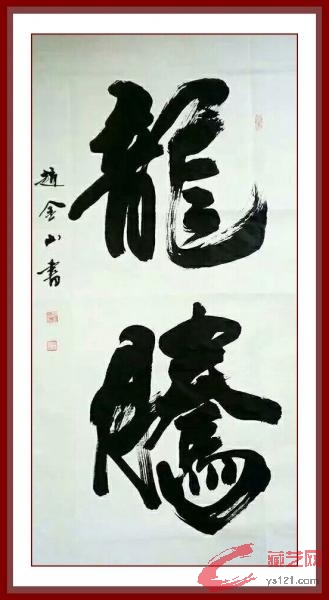 龍騰
趙金山書
藏艺网
ys121.com